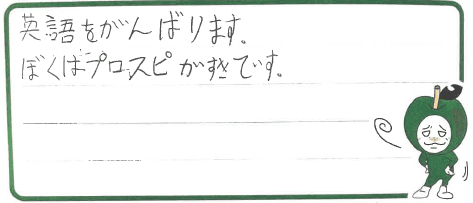 英語をがんばります。
ぼくはプロスピがすきです。